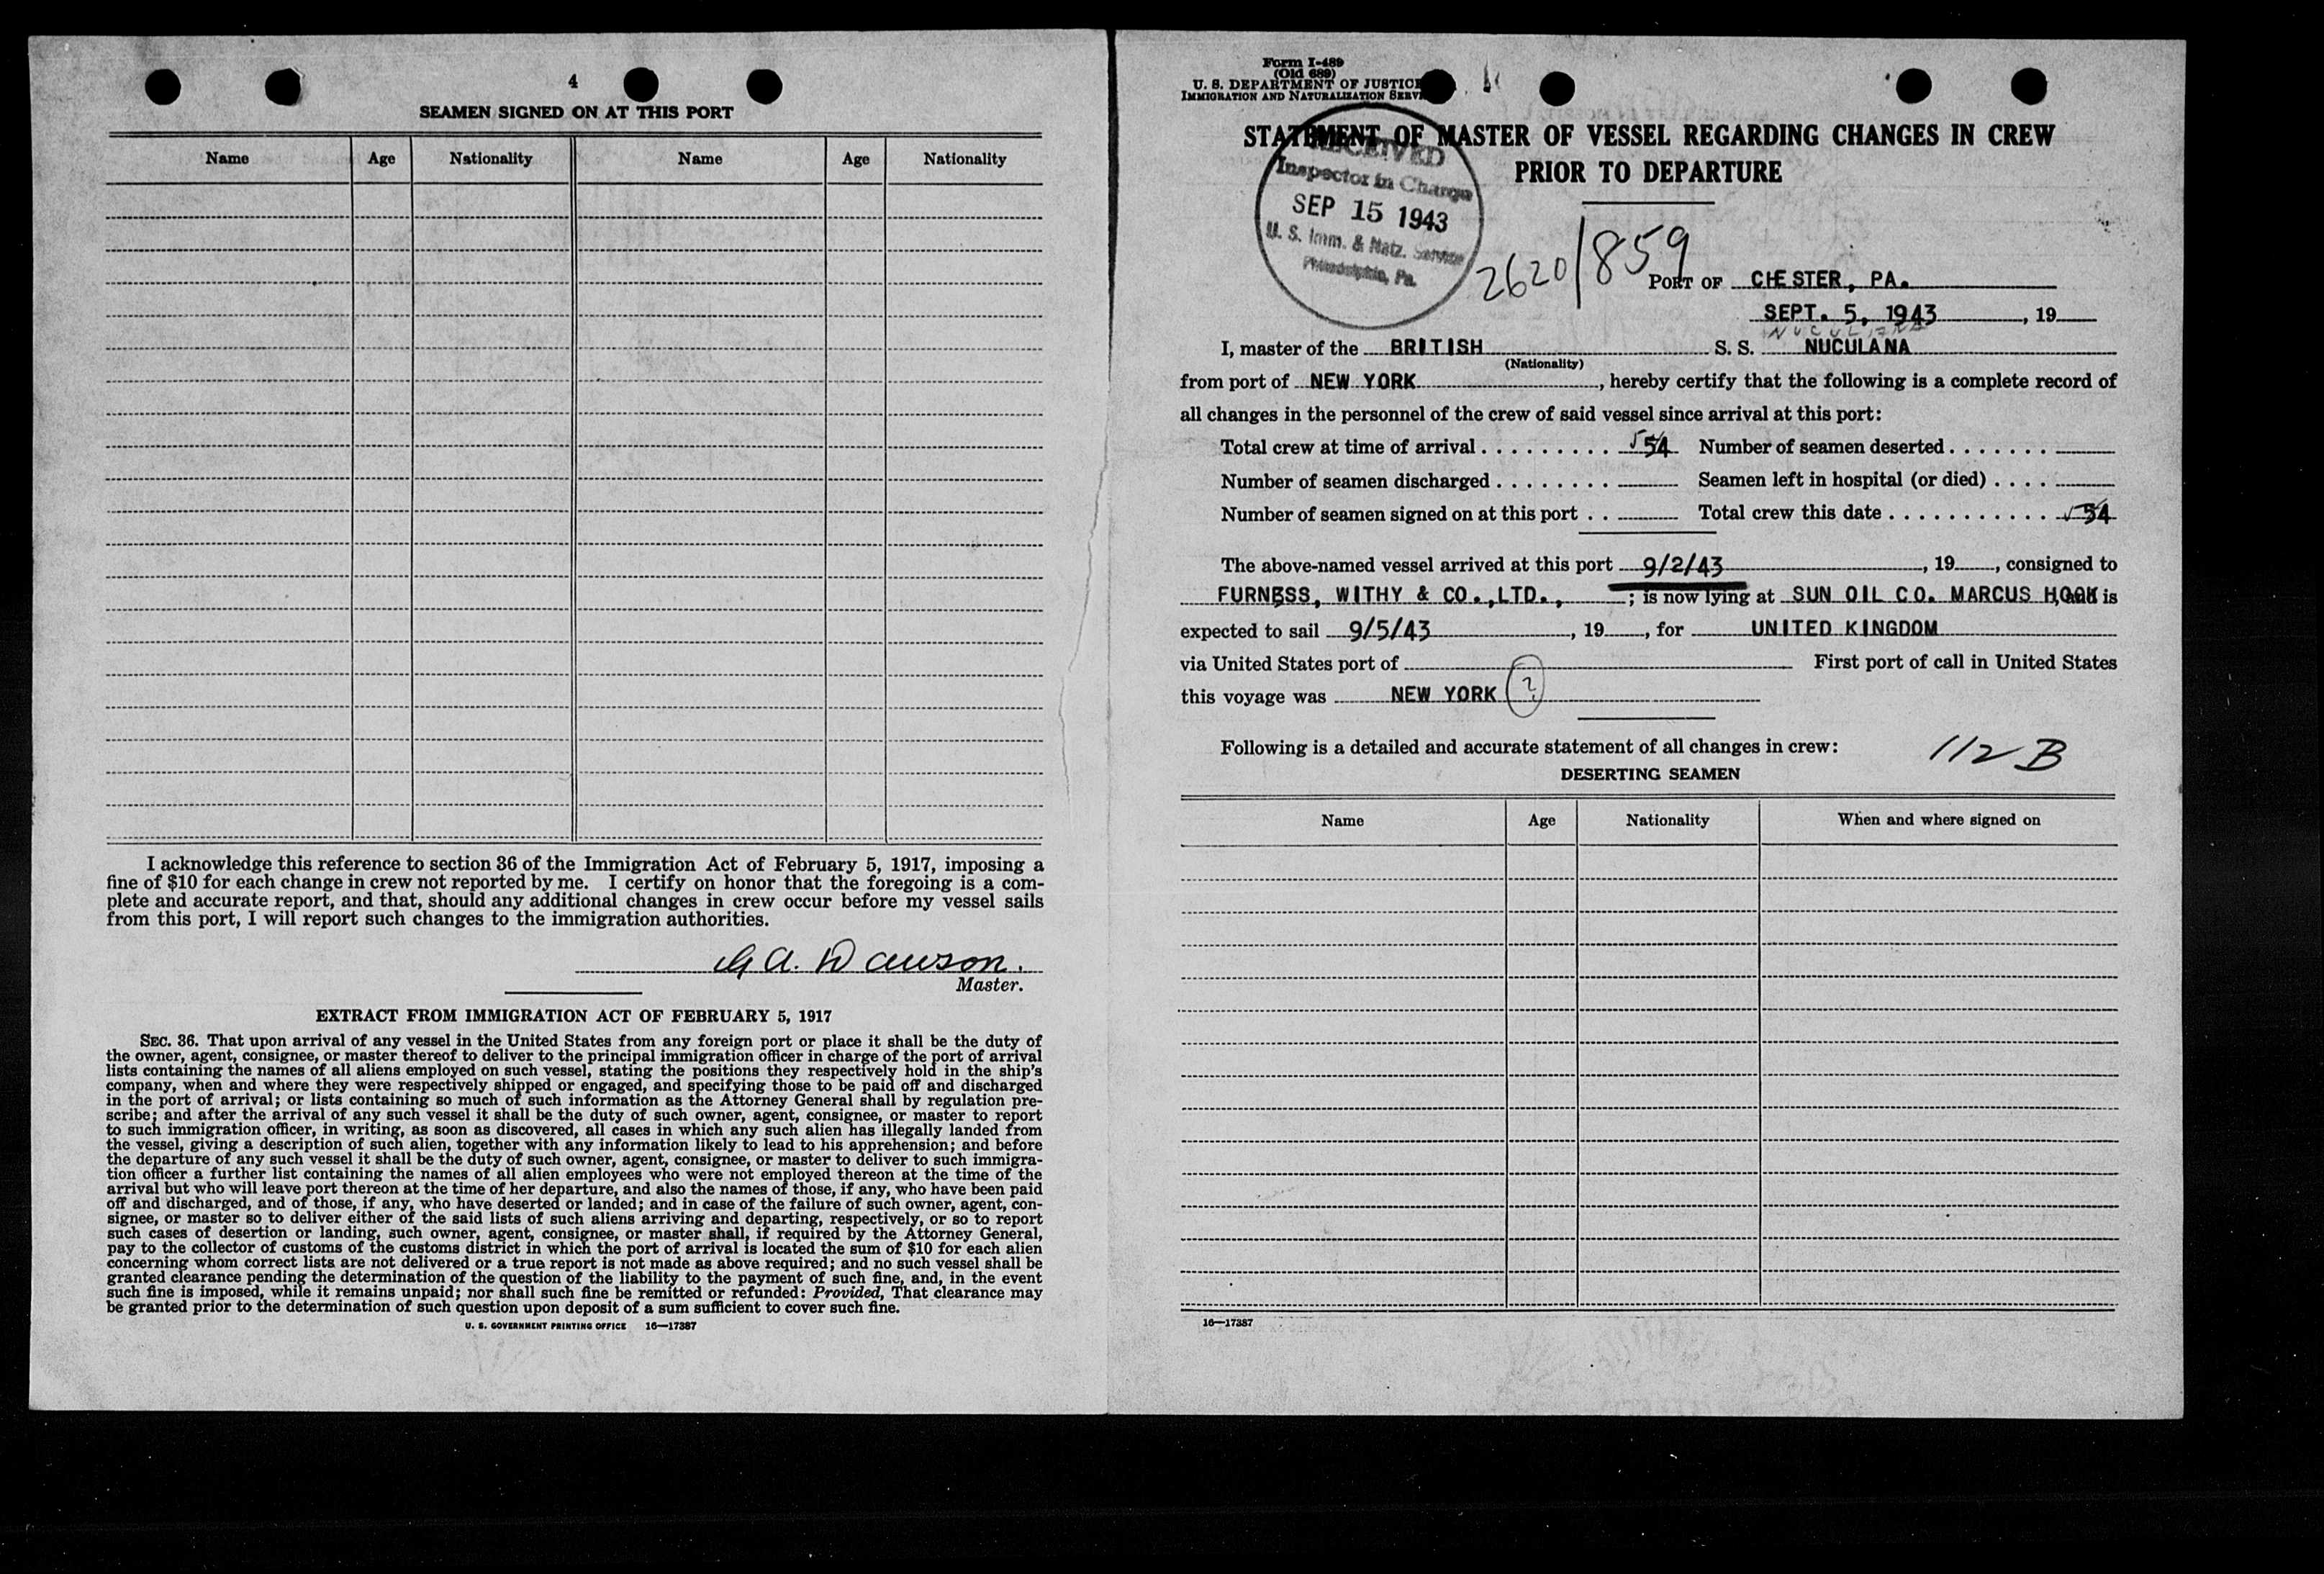 4
SEAMEN SIGNED ON AT THIS PORT
Name Age Nationality Name Age Nationality
I acknowledge this reference to section 36 of the Immigration Act of February 5, 1917, imposing a
fine of $10 for each change in crew not reported by me. I certify on honor that the foregoing is a com-
plete and accurate report, and that, should any additional changes in crew occur before my vessel sails
from this port, I will report such changes to the immigration authorities.
G A. Dawson.
Master.
EXTRACT FROM IMMIGRATION ACT OF FEBRUARY 5, 1917
SEC. 36. That upon arrival of any vessel in the United States from any foreign port or place it shall be the duty of
the owner, agent, consignee, or master thereof to deliver to the principal immigration officer in charge of the port of arrival
lists containing the names of all aliens employed on such vessel, stating the positions they respectively hold in the ship's
company, when and where they were respectively shipped or engaged, and specifying those to be paid off and discharged
in the port of arrival; or lists containing so much of such information as the Attorney General shall by regulation pre-
scribe; and after the arrival of any such vessel it shall be the duty of such owner, agent, consignee, or master to report
to such immigration officer, in writing, as soon as discovered, all cases in which any such alien has illegally landed from
the vessel, giving a description of such alien, together with any information likely to lead to his apprehension; and before
the departure of any such vessel it shall be the duty of such owner, agent, consignee, or master to deliver to such immigra-
tion officer a further list containing the names of all alien employees who were not employed thereon at the time of the
arrival but who will leave port thereon at the time of her departure, and also the names of those, if any, who have been paid
off and discharged, and of those, if any, who have deserted or landed; and in case of the failure of such owner, agent, con-
signee, or master so to deliver either of the said lists of such aliens arriving and departing, respectively, or so to report
such cases of desertion or landing, such owner, agent, consignee, or master shall, if required by the Attorney General,
pay to the collector of customs of the customs district in which the port of arrival is located the sum of $10 for each alien
concerning whom correct lists are not delivered or a true report is not made as above required; and no such vessel shall be
granted clearance pending the determination of the question of the liability to the payment of such fine, and, in the event
such fine is imposed, while it remains unpaid; nor shall such fine be remitted or refunded: Provided, That clearance may
be granted prior to the determination of such question upon deposit of a sum sufficient to cover such fine.
U. S. GOVERNMENT PRINTING OFFICE 16—17387
Form I-489
(Old 689)
U. S. DEPARTMENT OF JUSTICE
IMMIGRATION AND NATURALIZATION SERVI
STATEMENT OF MASTER OF VESSEL REGARDING CHANGES IN CREW
PRIOR TO DEPARTURE
RECEIVED
Inspector in Charge
SEP 15 1943
U. S. Imm. & Natz. Service
Philadelphia, Pa.
2620/859
PORT OF CHESTER, PA.
SEPT. 5, 1943, 19
NUCULANA
I, master of the BRITISH S. S. NUCULANA
(Nationality)
from port of NEW YORK, hereby certify that the following is a complete record of
all changes in the personnel of the crew of said vessel since arrival at this port:
Total crew at time of arrival . . . . . . . . . 54 Number of seamen deserted . . . . . . .
Number of seamen discharged . . . . . . . . Seamen left in hospital (or died) . . . .
Number of seamen signed on at this port . . Total crew this date . . . . . . . . . . . . 54
The above-named vessel arrived at this port 9/2/43, 19, consigned to
FURNESS, WITHY & CO.,LTD., ; is now lying at SUN OIL CO. MARCUS HOOK, and is
expected to sail 9/5/43, 19, for UNITED KINGDOM
via United States port of First port of call in United States
this voyage was NEW YORK ?
Following is a detailed and accurate statement of all changes in crew: 112 B
DESERTING SEAMEN
Name Age Nationality When and where signed on
16—17387